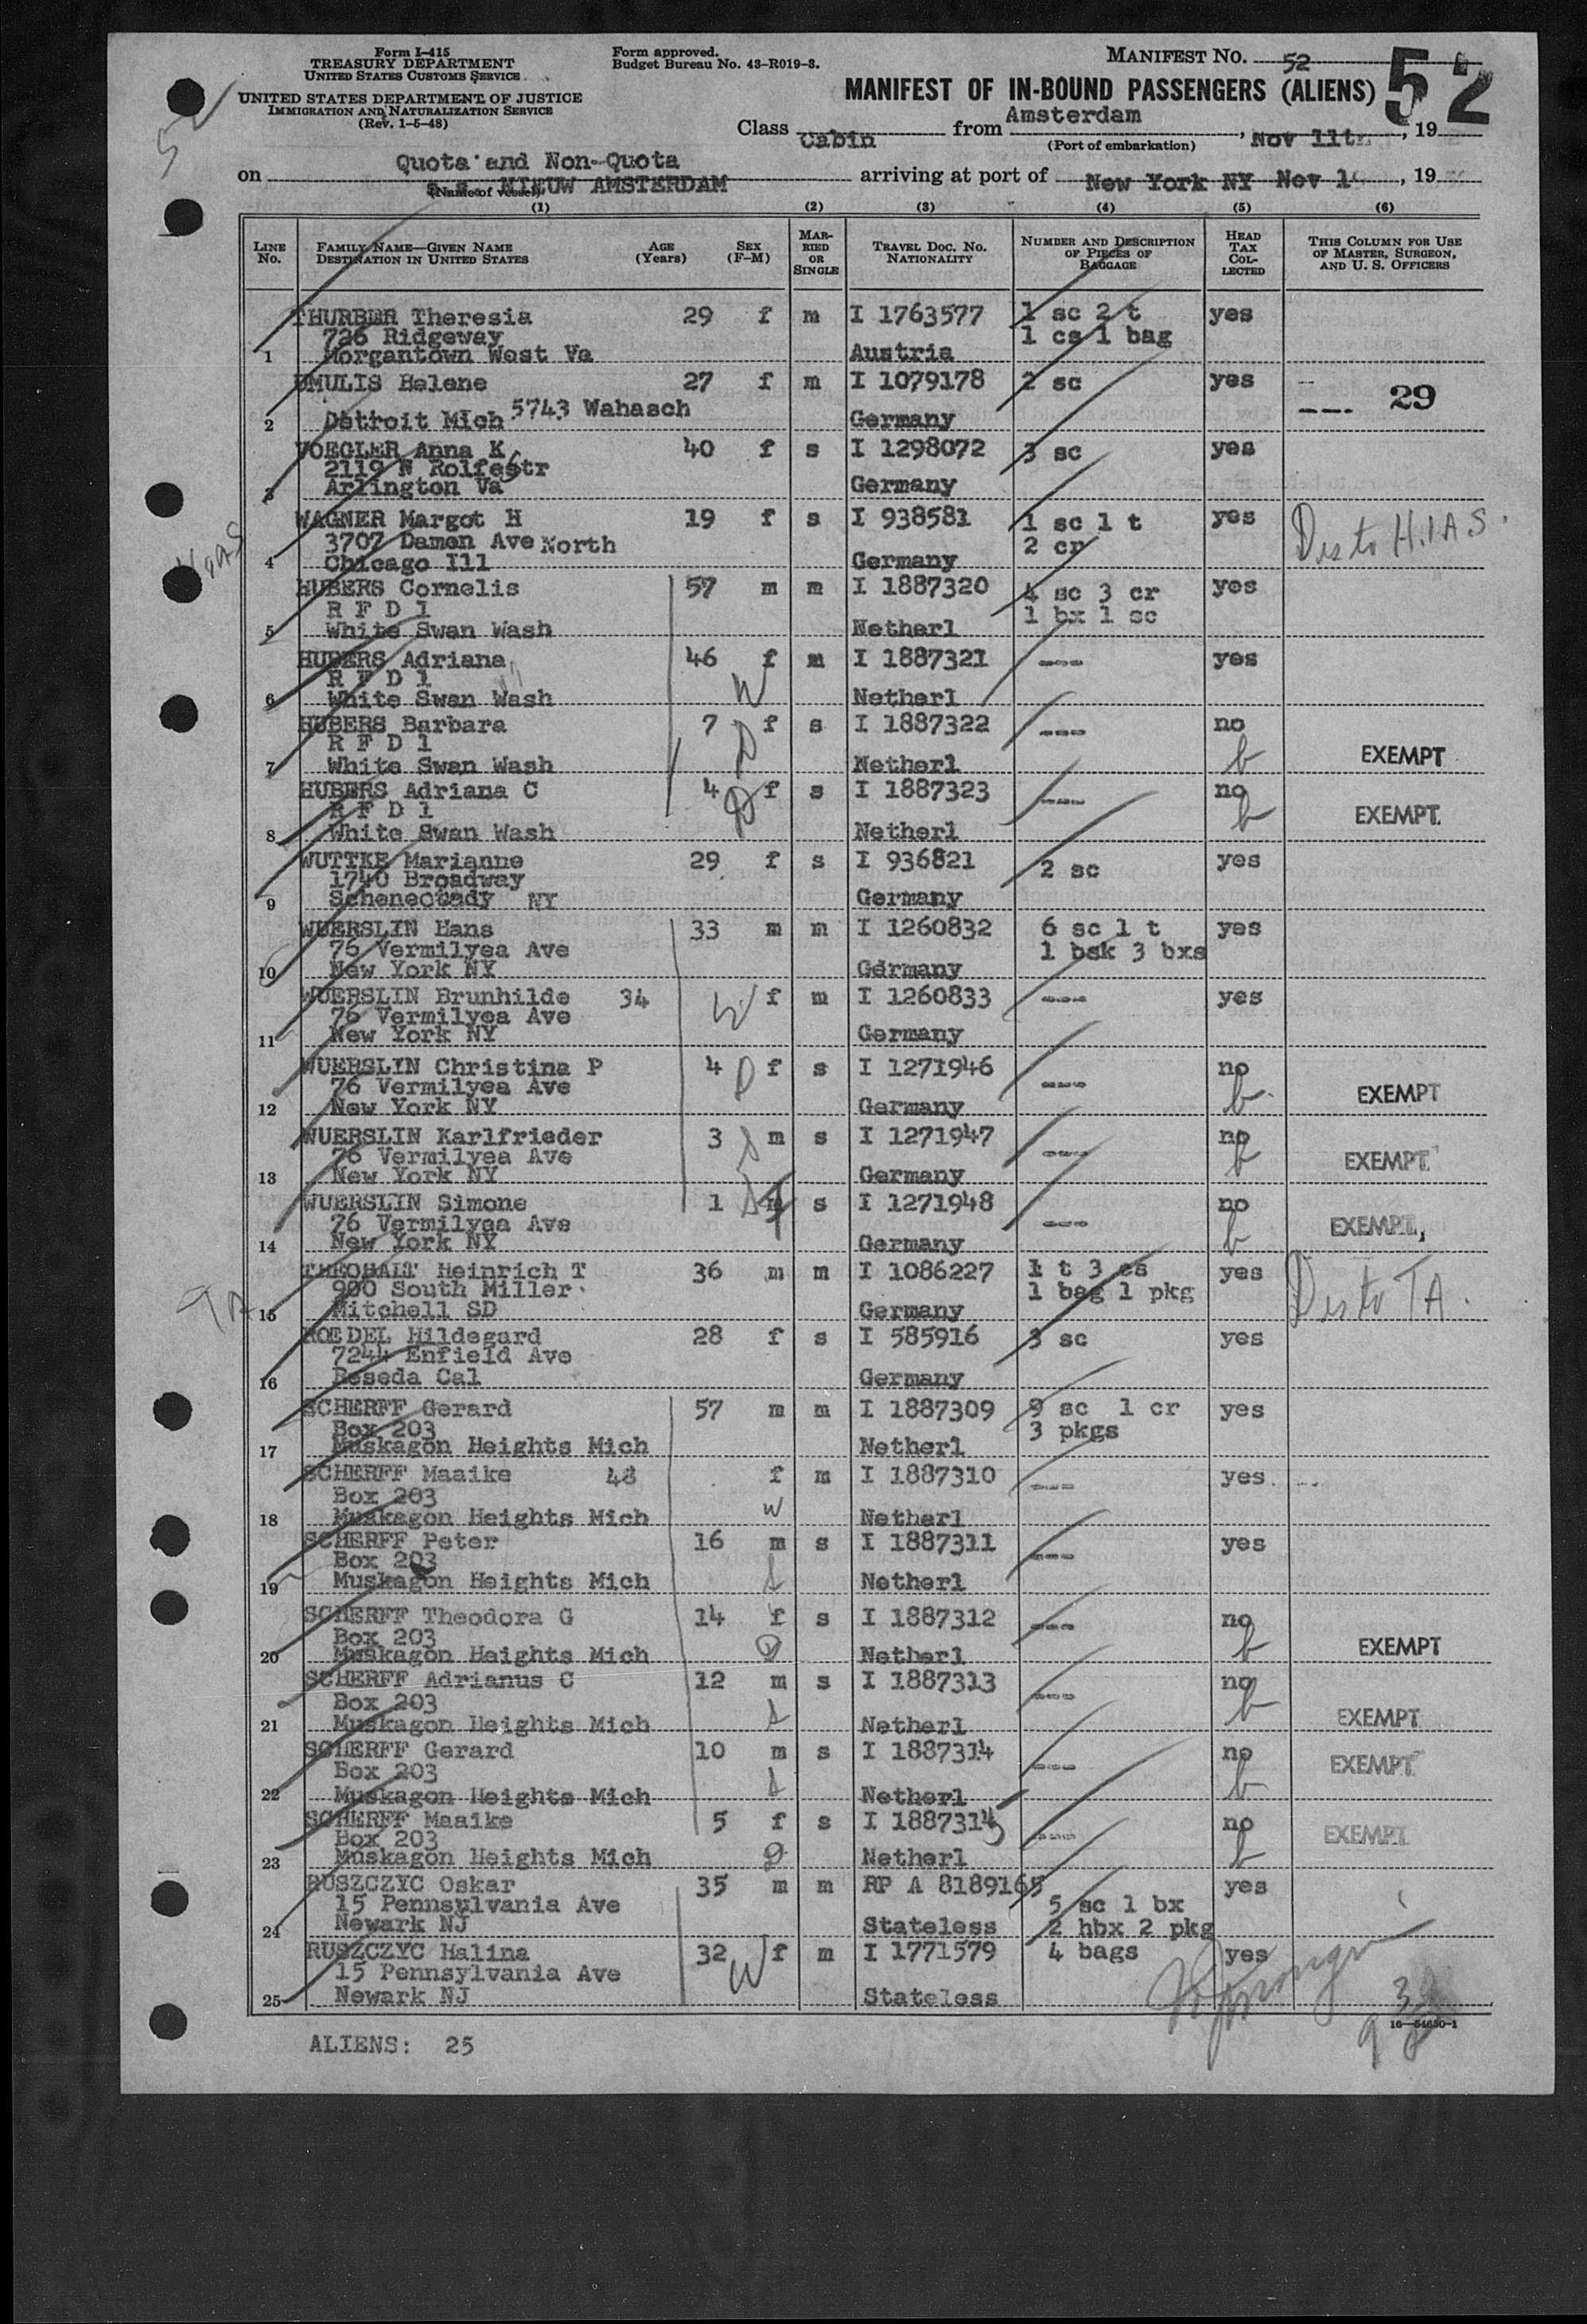 Form I-415
TREASURY DEPARTMENT
UNITED STATES CUSTOMS SERVICE
UNITED STATES DEPARTMENT OF JUSTICE
IMMIGRATION AND NATURALIZATION SERVICE
(Rev. 1-5-48)
Form approved.
Budget Bureau No. 43-R019-3.
MANIFEST NO. 52
52
MANIFEST OF IN-BOUND PASSENGERS (ALIENS)
Class Cabin from Amsterdam, Nov 11th, 19
(Port of embarkation)
Quota and Non-Quota
on s.s. NIEUW AMSTERDAM arriving at port of New York NY Nov 1 , 19
(Name of vessel)
(1) (2) (3) (4) (5) (6)
LINE NO. FAMILY NAME—GIVEN NAME DESTINATION IN UNITED STATES AGE (Years) SEX (F-M) MARRIED OR SINGLE TRAVEL DOC. NO. NATIONALITY NUMBER AND DESCRIPTION OF PIECES OF BAGGAGE HEAD TAX COLLECTED THIS COLUMN FOR USE OF MASTER, SURGEON, AND U. S. OFFICERS
THURBER Theresia 29 f m I 1763577 1 sc 2 t yes
726 Ridgeway 1 cs 1 bag
1 Morgantown West Va Austria
UMULIS Helene 27 f m I 1079178 2 sc yes
29
2 Detroit Mich 5743 Wahasch Germany
VOEGLER Anna K 40 f s I 1298072 3 sc yes
2119 N Rolfestr
3 Arlington Va Germany
WAGNER Margot H 19 f s I 938581 1 sc 1 t yes Des to H.I.A.S.
3707 Damen Ave North 2 cr
4 Chicago Ill Germany
HUBERS Cornelis 57 m m I 1887320 4 sc 3 cr yes
R F D 1 1 bx 1 sc
5 White Swan Wash Netherl
HUBERS Adriana 46 f m I 1887321 --- yes
R F D 1 W
6 White Swan Wash Netherl
HUBERS Barbara 7 f s I 1887322 --- no
R F D 1 D
7 White Swan Wash Netherl b EXEMPT
HUBERS Adriana C 4 f s I 1887323 --- no
R F D 1 D b EXEMPT
8 White Swan Wash Netherl
WUTTKE Marianne 29 f s I 936821 2 sc yes
1740 Broadway
9 Schenectady NY Germany
WUERSLIN Hans 33 m m I 1260832 6 sc 1 t yes
76 Vermilyea Ave 1 bsk 3 bxs
10 New York NY Germany
WUERSLIN Brunhilde 34 W f m I 1260833 --- yes
76 Vermilyea Ave
11 New York NY Germany
WUERSLIN Christina P 4 D f s I 1271946 --- no
76 Vermilyea Ave b EXEMPT
12 New York NY Germany
WUERSLIN Karlfrieder 3 S m s I 1271947 --- no
76 Vermilyea Ave b EXEMPT
13 New York NY Germany
WUERSLIN Simone 1 f s I 1271948 --- no
76 Vermilyea Ave b EXEMPT
14 New York NY Germany
THEOBALT Heinrich T 36 m m I 1086227 1 t 3 cs yes Des to TA.
900 South Miller 1 bag 1 pkg
TA
15 Mitchell SD Germany
ROEDEL Hildegard 28 f s I 585916 3 sc yes
7244 Enfield Ave
16 Reseda Cal Germany
SCHERFF Gerard 57 m m I 1887309 9 sc 1 cr yes
Box 203 3 pkgs
17 Muskagon Heights Mich Netherl
SCHERFF Maaike 48 f m I 1887310 --- yes
Box 203 W
18 Muskagon Heights Mich Netherl
SCHERFF Peter 16 m s I 1887311 --- yes
Box 203 S
19 Muskagon Heights Mich Netherl
SCHERFF Theodora G 14 f s I 1887312 --- no
Box 203 D b EXEMPT
20 Muskagon Heights Mich Netherl
SCHERFF Adrianus C 12 m s I 1887313 --- no
Box 203 S b EXEMPT
21 Muskagon Heights Mich Netherl
SCHERFF Gerard 10 m s I 1887314 --- no
Box 203 S b EXEMPT
22 Muskagon Heights Mich Netherl
SCHERFF Maaike 5 f s I 1887315 --- no
Box 203 D b EXEMPT
23 Muskagon Heights Mich Netherl
RUSZCZYC Oskar 35 m m RP A 8189165 yes
15 Pennsylvania Ave 5 sc 1 bx
24 Newark NJ Stateless 2 hbx 2 pkg
RUSZCZYC Halina 32 W f m I 1771579 4 bags yes
15 Pennsylvania Ave
25 Newark NJ Stateless
16—54650-1
ALIENS: 25